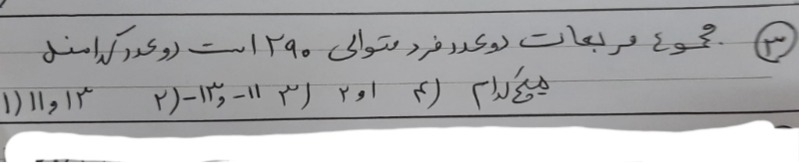 ۳) مجموع مربعات دو عدد فرد متوالی ۲۹۰ است دو عدد کدامند
۱) ۱۱ و ۱۳ ۲) -۱۳ و -۱۱ ۳) ۱ و ۲ ۴) هیچکدام